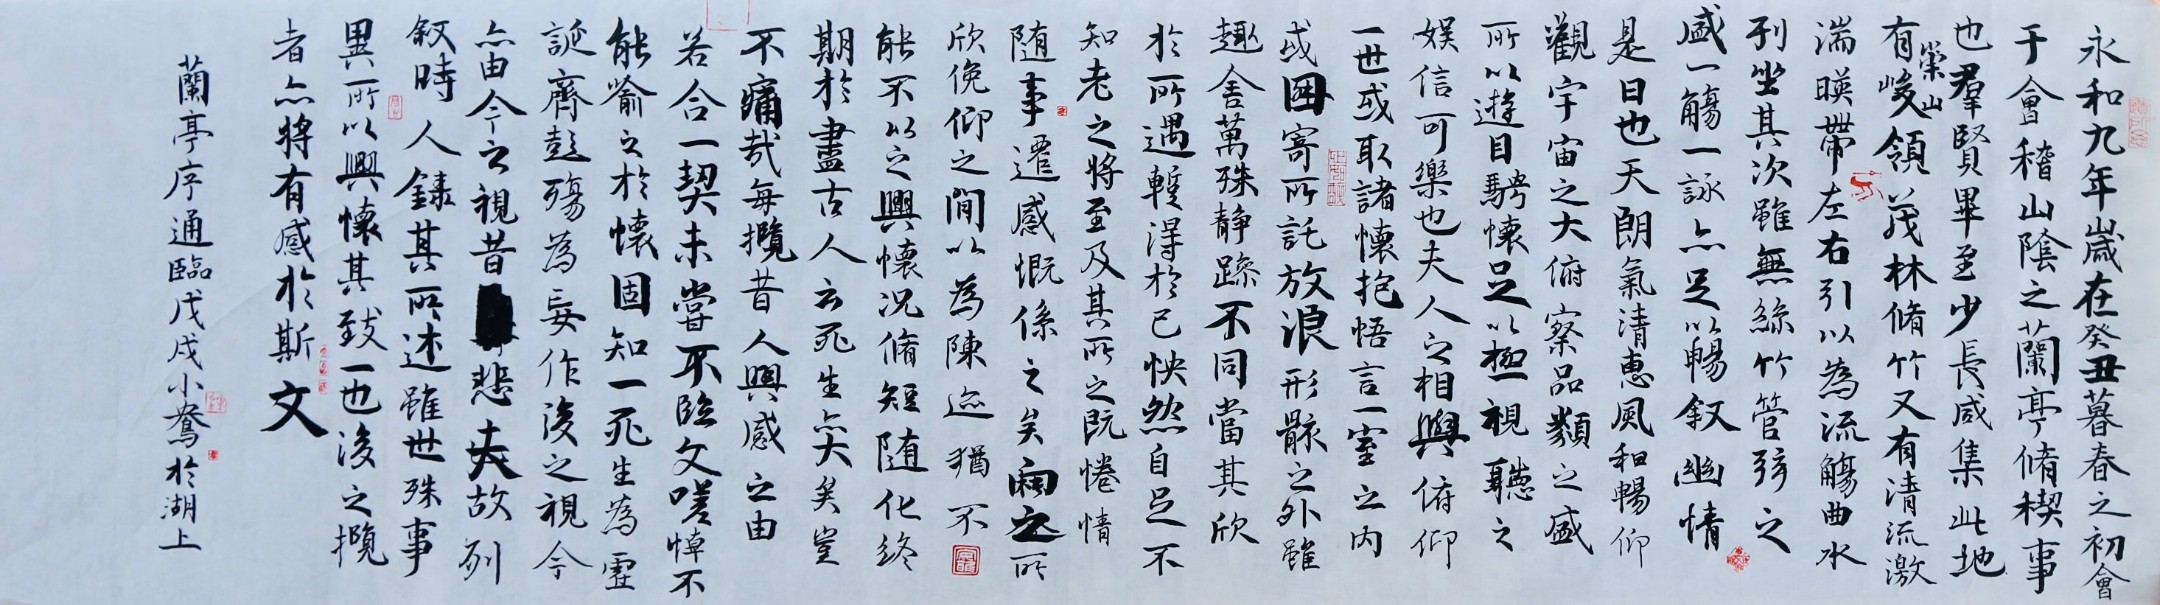 永和九年歲在癸丑暮春之初會
于會稽山陰之蘭亭脩稧事
也羣賢畢至少長咸集此地
有崇山峻領茂林脩竹又有清流激
湍暎帶左右引以為流觴曲水
列坐其次雖無絲竹管弦之
盛一觴一詠亦足以暢叙幽情
是日也天朗氣清惠風和暢仰
觀宇宙之大俯察品類之盛
所以遊目騁懷足以極視聽之
娛信可樂也夫人之相與俯仰
一世或取諸懷抱悟言一室之內
或因寄所託放浪形骸之外雖
趣舍萬殊靜躁不同當其欣
於所遇暫得於己怏然自足不
知老之將至及其所之既惓情
随事遷感慨係之矣向之所
欣俛仰之間以為陳迹猶不
能不以之興懷況脩短随化終
期於盡古人云死生亦大矣豈
不痛哉每攬昔人興感之由
若合一契未嘗不臨文嗟悼不
能喻之於懷固知一死生為虛
誕齊彭殤為妄作後之視今
亦由今之視昔悲夫故列
叙時人錄其所述雖世殊事
異所以興懷其致一也後之攬
者亦將有感於斯文
蘭亭序通臨戊戌小於湖上